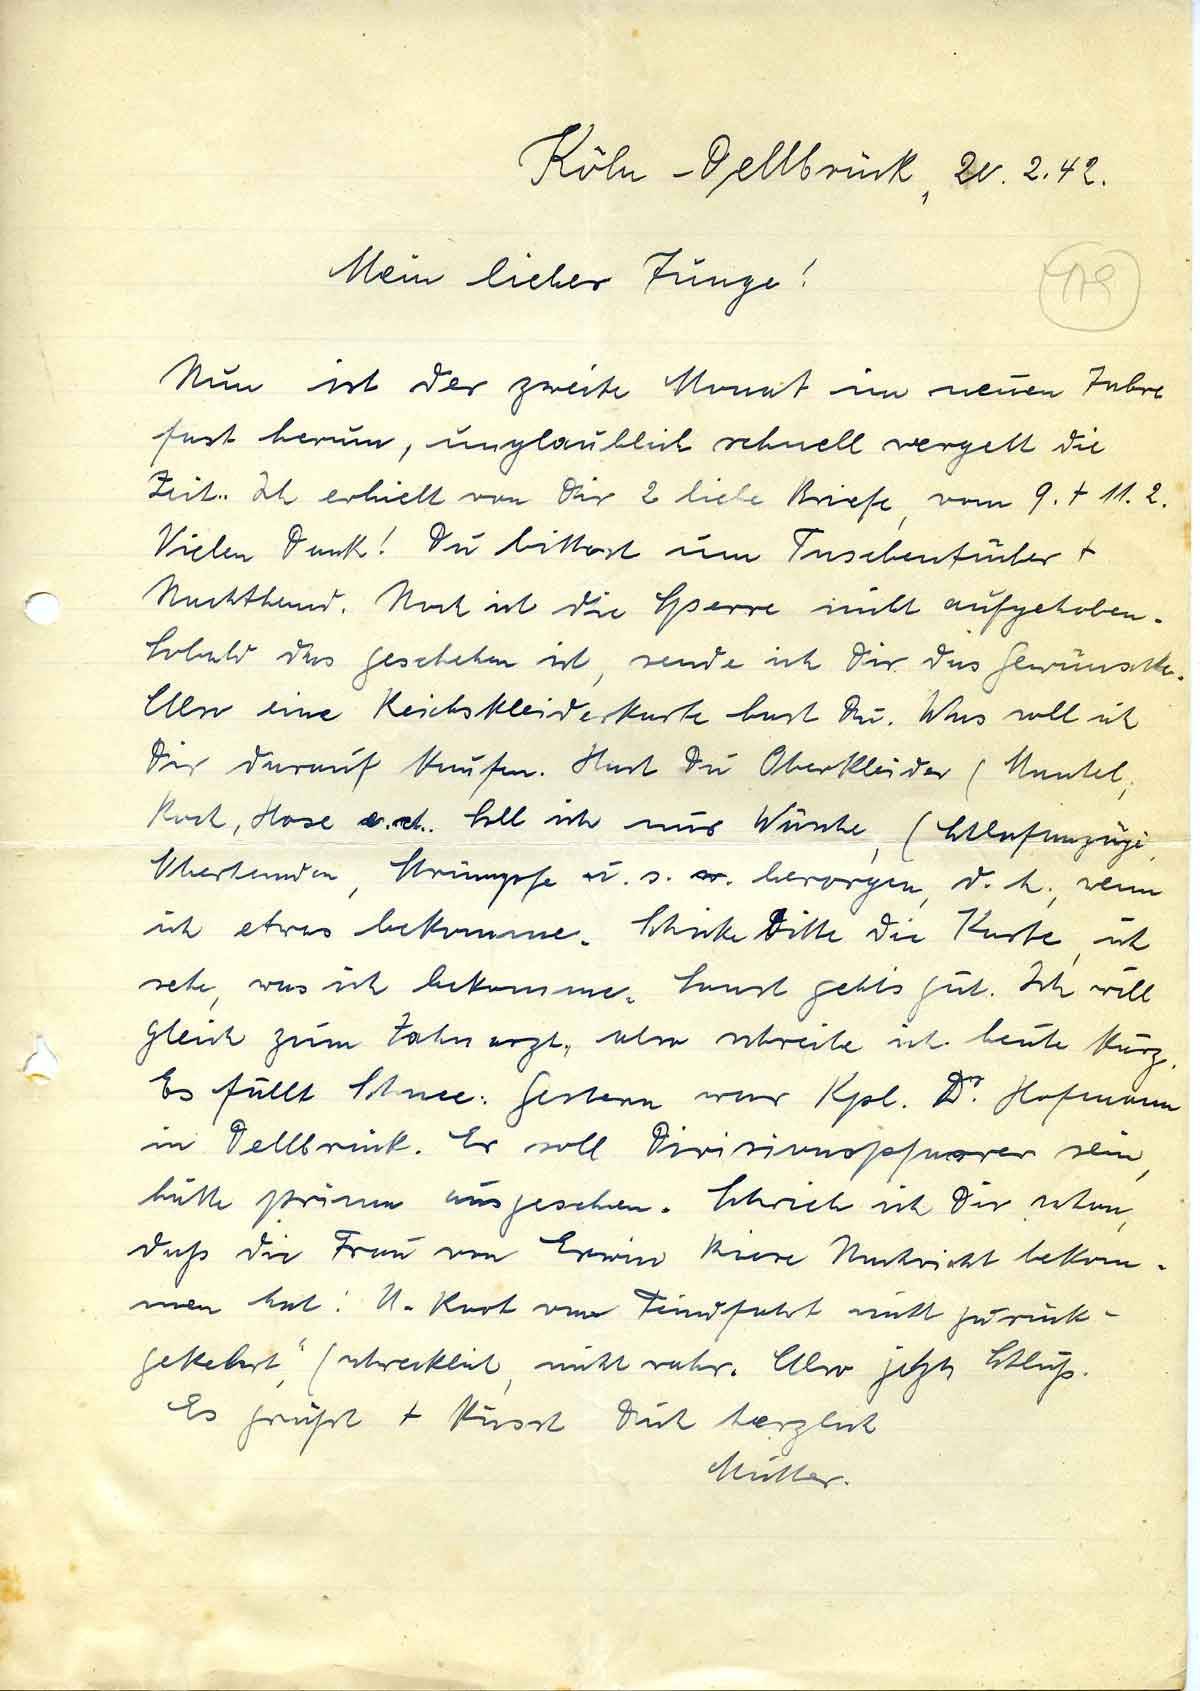 Köln-Dellbrück, 20.2.42.
119
Mein lieber Junge!
Nun ist der zweite Monat im neuen Jahre
fast herum, unglaublich schnell vergeht die
Zeit. Ich erhielt von Dir 2 liebe Briefe, vom 9. + 11.2.
Vielen Dank! Du bittest um Taschentücher +
Nachthemd. Noch ist die Sperre nicht aufgehoben.
Sobald das geschehen ist, sende ich Dir das Gewünschte.
Also eine Reichskleiderkarte hast Du. Was soll ich
Dir darauf kaufen. Hast Du Oberkleider (Mantel,
Rock, Hose e.ct. Soll ich nur Wäsche, (Schlafanzüge,
Oberhemden, Strümpfe u.s.w. besorgen, d.h., wenn
ich etwas bekomme. Schicke Bitte die Karte, ich
sehe, was ich bekomme. Sonst geht's gut. Ich will
gleich zum Zahnarzt, also schreibe ich heute kurz.
Es fällt Schnee. Gestern war Kpl. Dr. Hofmann
in Dellbrück. Er soll Divisionspfarrer sein,
hätte prima ausgesehen. Schrieb ich Dir schon,
daß die Frau von Erwin Nachricht bekom-
men hat: U-Boot von Feindfahrt nicht zurück-
gekehrt", (schrecklich, nicht wahr. Also jetzt Schluß.
Es grüßt + küsst Dich herzlich
Mutter.